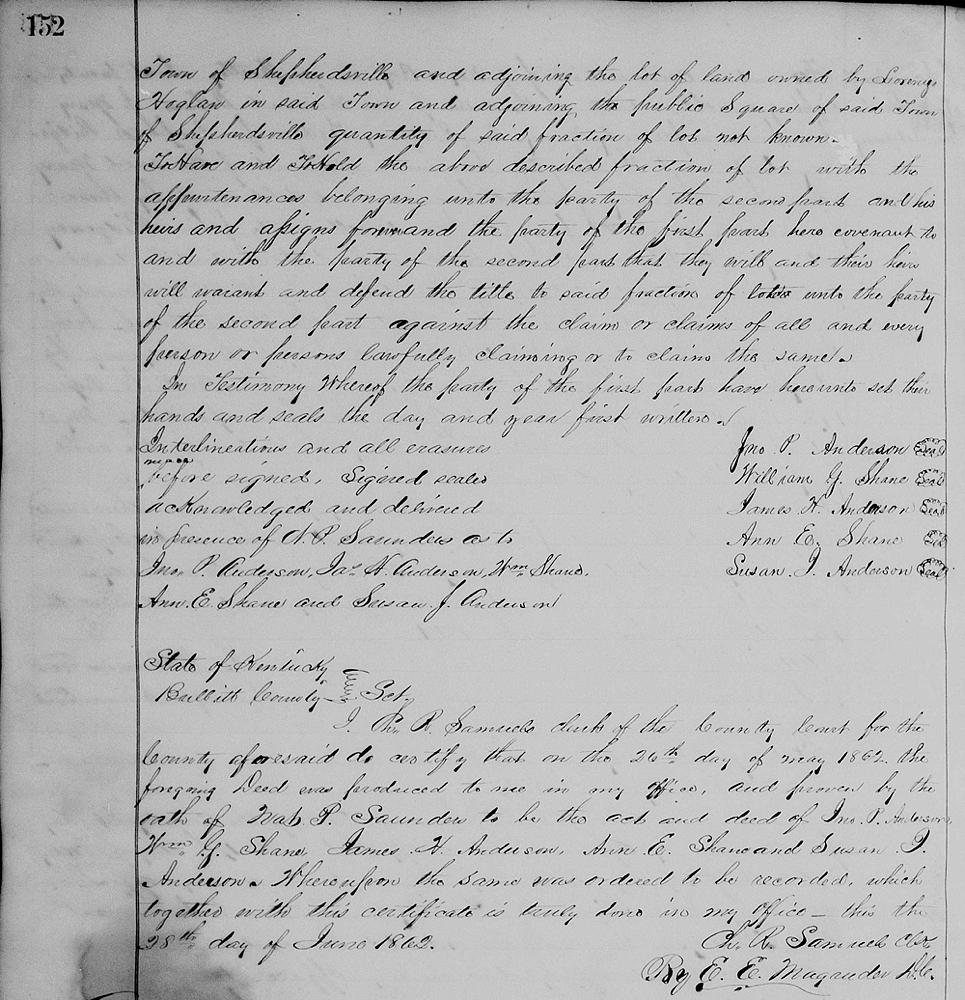 152
Town of Shepherdsville and adjoining the lot of land owned by Lorenzo
Hoglan in said Town and adjoining the public Square of said Town
of Shepherdsville quantity of said fraction of lot not known.
To Have and To Hold the above described fraction of lot with the
appurtenances belonging unto the party of the second part and his
heirs and assigns forever and the party of the first part here covenant to
and with the party of the second part that they will and their heirs
will warant and defend the title to said fraction of lot unto the party
of the second part against the claim or claims of all and every
person or persons lawfully claiming or to claim the same.
In Testimony Whereof the party of the first part have hereunto set their
hands and seals the day and year first written.
Interlineations and all erasures Jno P. Anderson Seal
made
before signed, Signed sealed William G. Shane Seal
acknowledged and delivered James H. Anderson Seal
in presence of N. P. Saunders as to Ann E. Shane Seal
Jno. P. Anderson, Jas H. Anderson, Wm Shane, Susan J. Anderson Seal
Ann. E. Shane and Susan. J. Anderson
State of Kentucky
Bullitt County Sct,
I. Ch. R. Samuels clerk of the County Court for the
County aforesaid do certify that on the 26th day of may 1862. the
foregoing Deed was produced to me in my office, and proven by the
oath of Nat. P. Saunders to be the act and deed of Jno. P. Anderson,
Wm G. Shane, James H. Anderson, Ann E. Shane and Susan J.
Anderson. Whereupon the same was ordered to be recorded, which
together with this certificate is truly done in my office — this the
28th day of June 1862.
Ch. R. Samuels Clk
By E. E. Magruder D.C.